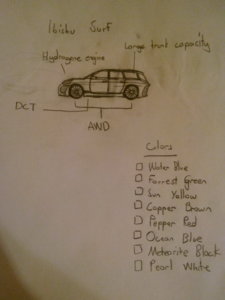 Ibishu Surf
Large trunk capacity
Hydrogene engine
DCT
AWD
Colors
Water Blue
Forrest Green
Sun Yellow
Copper Brown
Pepper Red
Ocean Blue
Meteorite Black
Pearl White